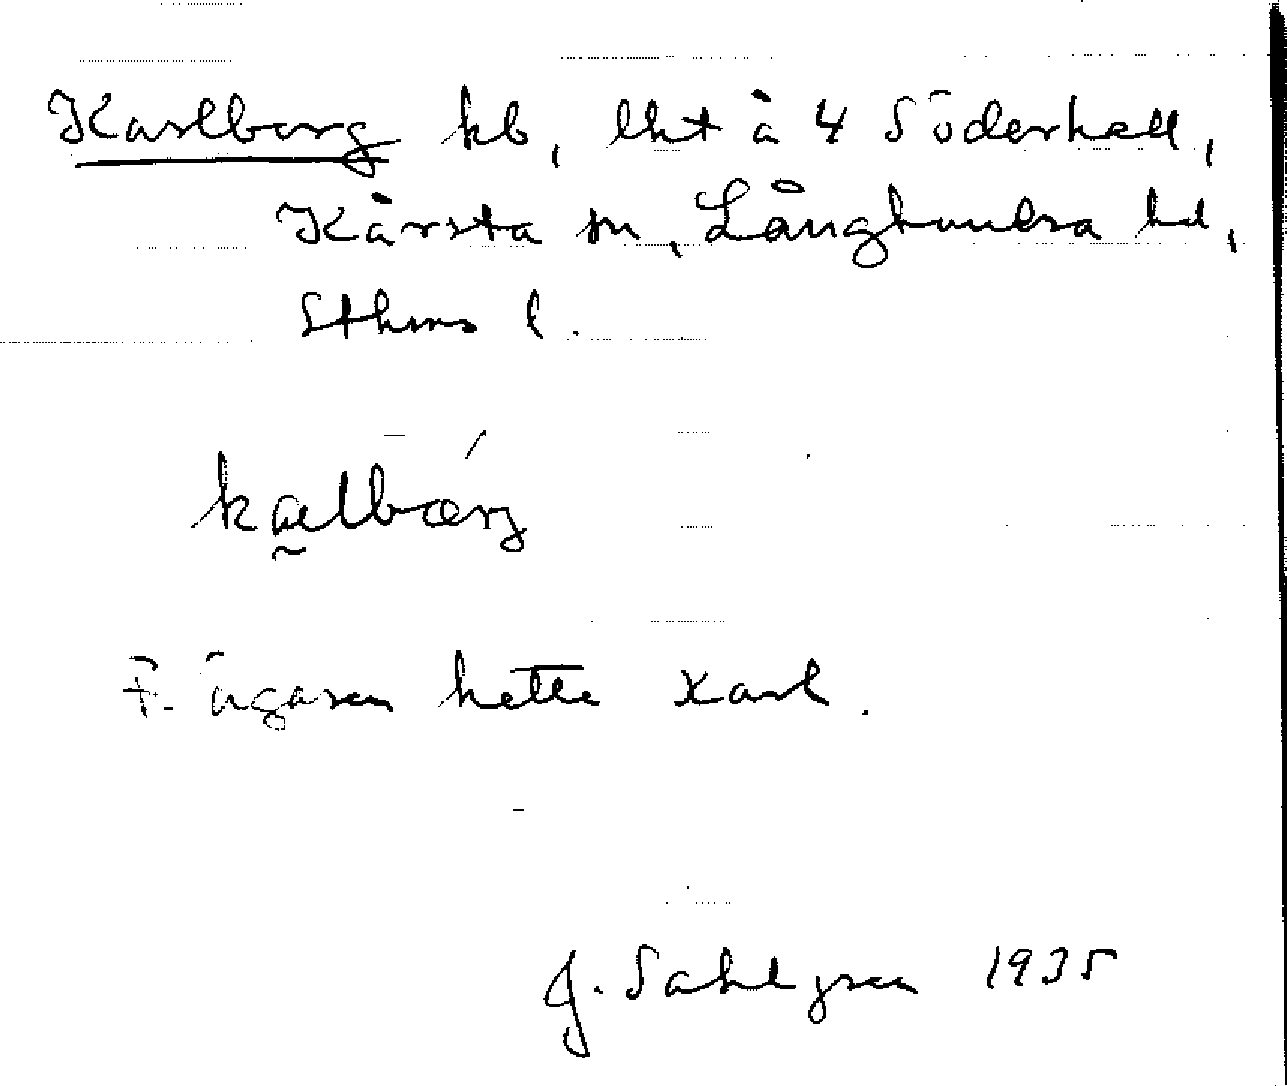 Karlborg hb, lht å 4 Söderhall,
Kårsta sn, Långhundra hd,
Sthms l.
kalbórj
F. ägaren hette Karl.
J. Sahlgren 1935